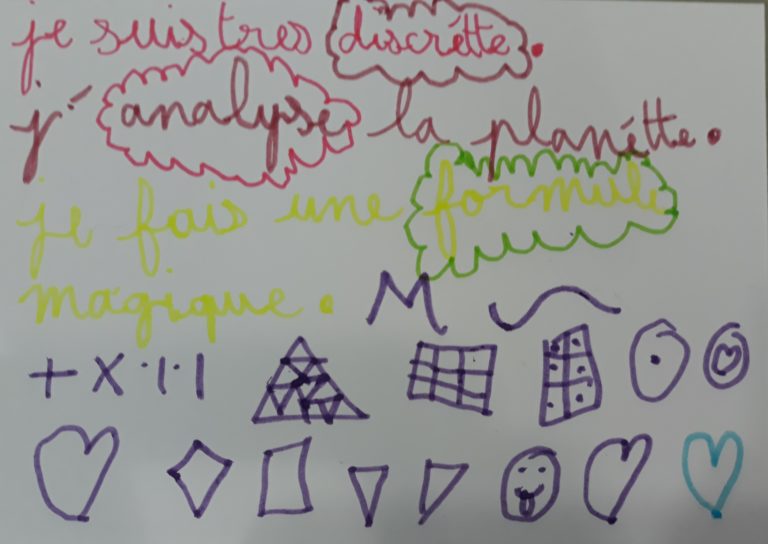 je suis tres discrétte.
j'analyse la planétte.
je fais une formule
magique. M
+ X ·|· |